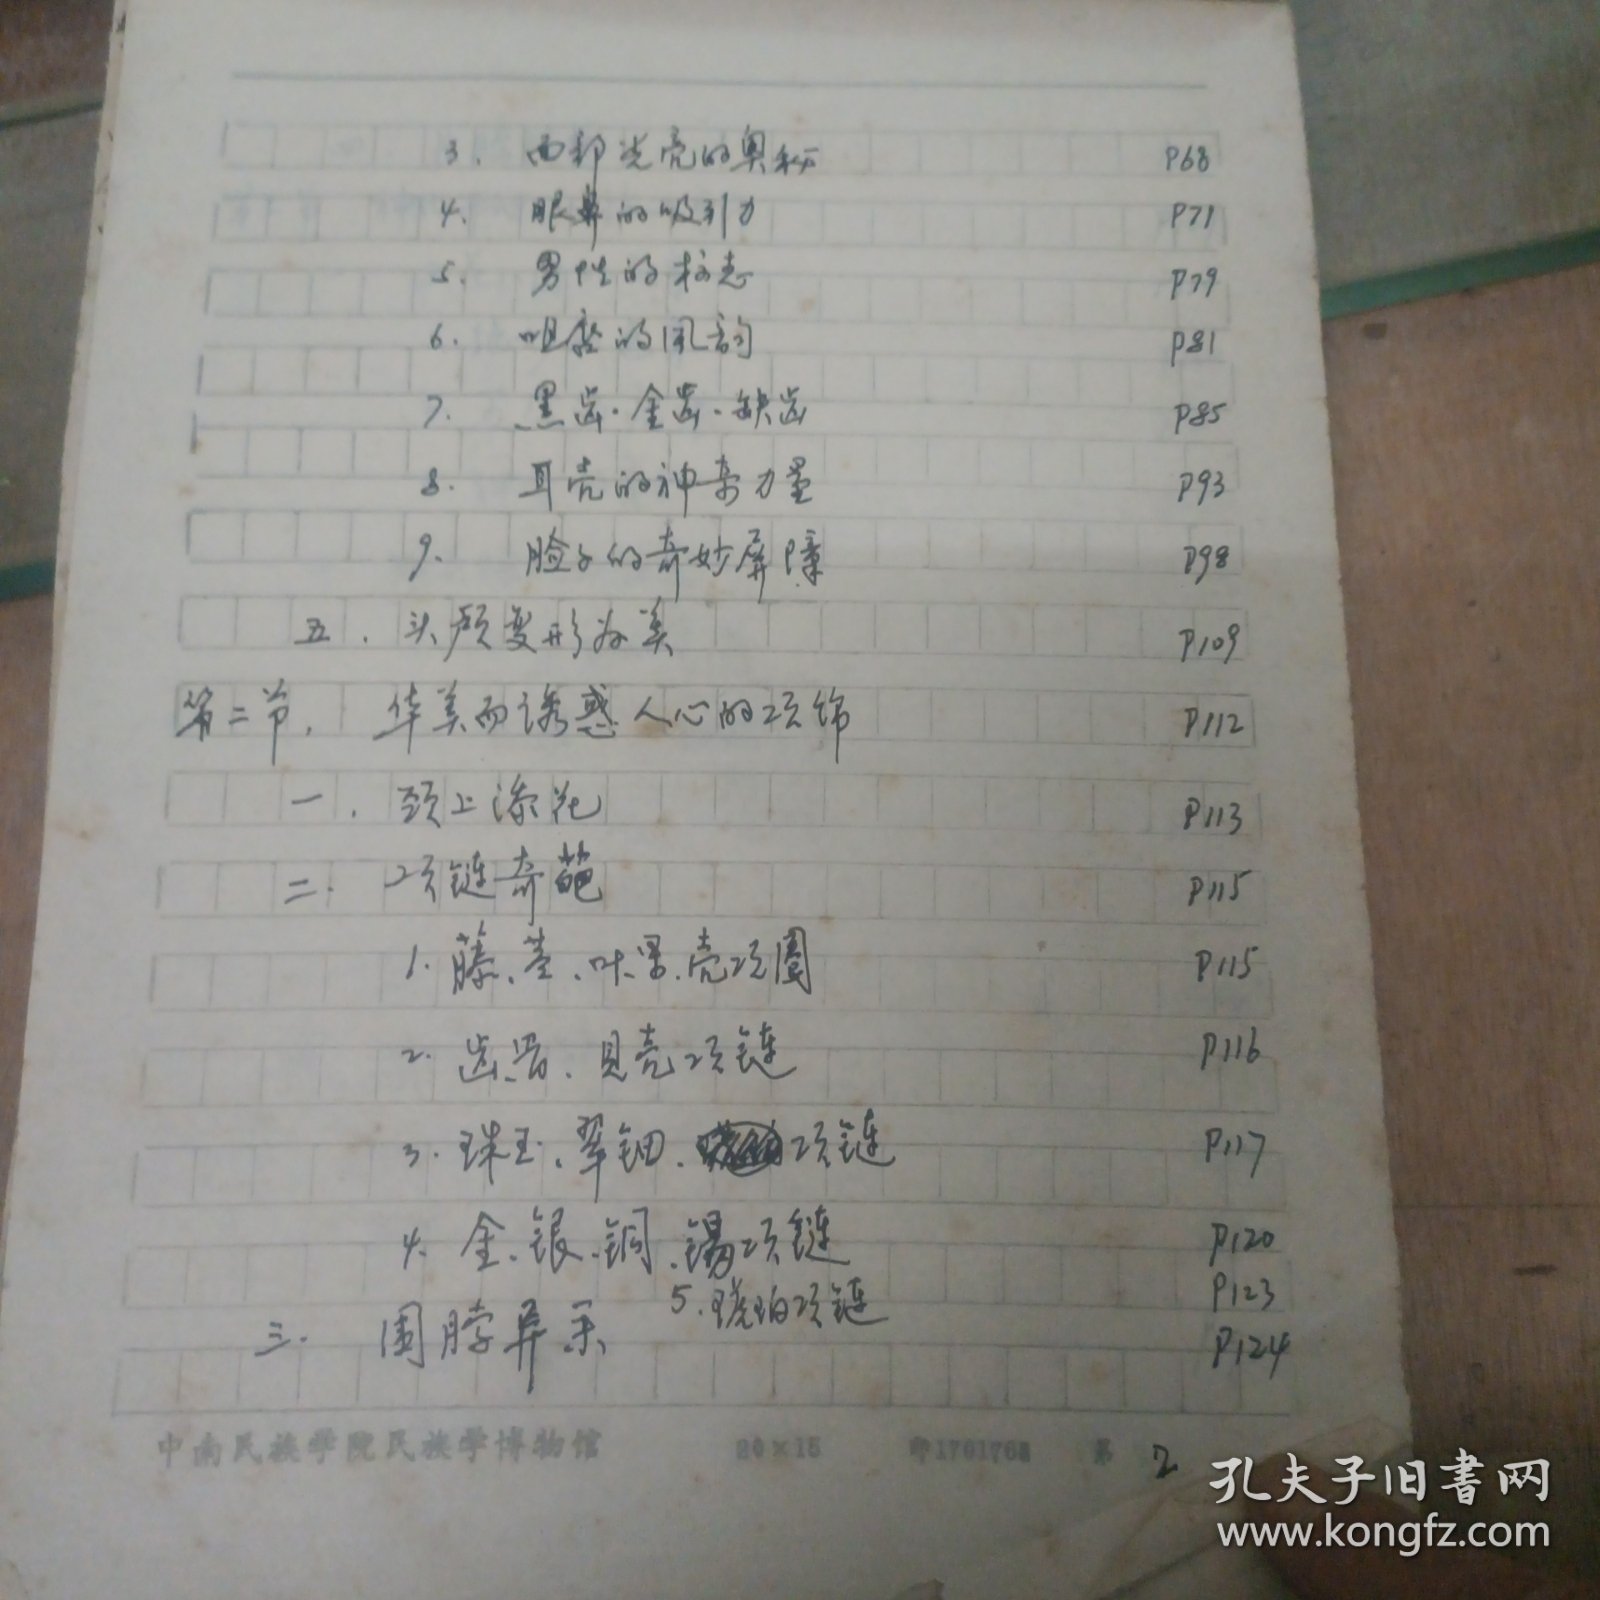 3. 面部光亮的奥秘 P68
4. 眼鼻的吸引力 P71
5. 男性的标志 P79
6. 咀唇的风韵 P81
7. 黑齿·金齿·缺齿 P85
8. 耳壳的神奇力量 P93
9. 脸子的奇妙屏障 P98
五. 头颅变形为美 P109
第二节. 华美而诱惑人心的项饰 P112
一. 颈上添花 P113
二. 项链奇葩 P115
1. 藤、茎、叶、果、壳项圈 P115
2. 齿骨、贝壳项链 P116
3. 珠玉、翠钿、项链 P117
4. 金、银、铜、锡项链 P120
5. 琥珀项链 P123
三. 围脖异采 P124
中南民族学院民族学博物馆 20×15 印1701768 第 2
孔夫子旧书网
www.kongfz.com